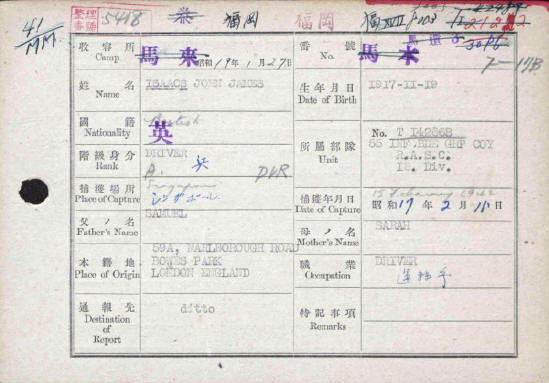 整理番號 5418 福岡 福岡
收容所 Camp 馬來 昭和19年1月27日 番號 No. 馬來
姓名 Name ISAACS JOHN JAMES 生年月日 Date of Birth 1917-11-19
國籍 Nationality British 英 所屬部隊 Unit No. T 142868
55 INF.BDE GRP COY
R.A.S.C.
18. Div.
階級身分 Rank DRIVER 兵 DVR
捕獲場所 Place of Capture Singapore シンガポール 捕獲年月日 Date of Capture 15 February 1942 昭和17年2月15日
父ノ名 Father's Name SAMUEL 母ノ名 Mother's Name SARAH
本籍地 Place of Origin 59A, MARLBOROUGH ROAD
BOWES PARK
LONDON ENGLAND
職業 Occupation DRIVER 運轉手
通報先 Destination of Report ditto 特記事項 Remarks